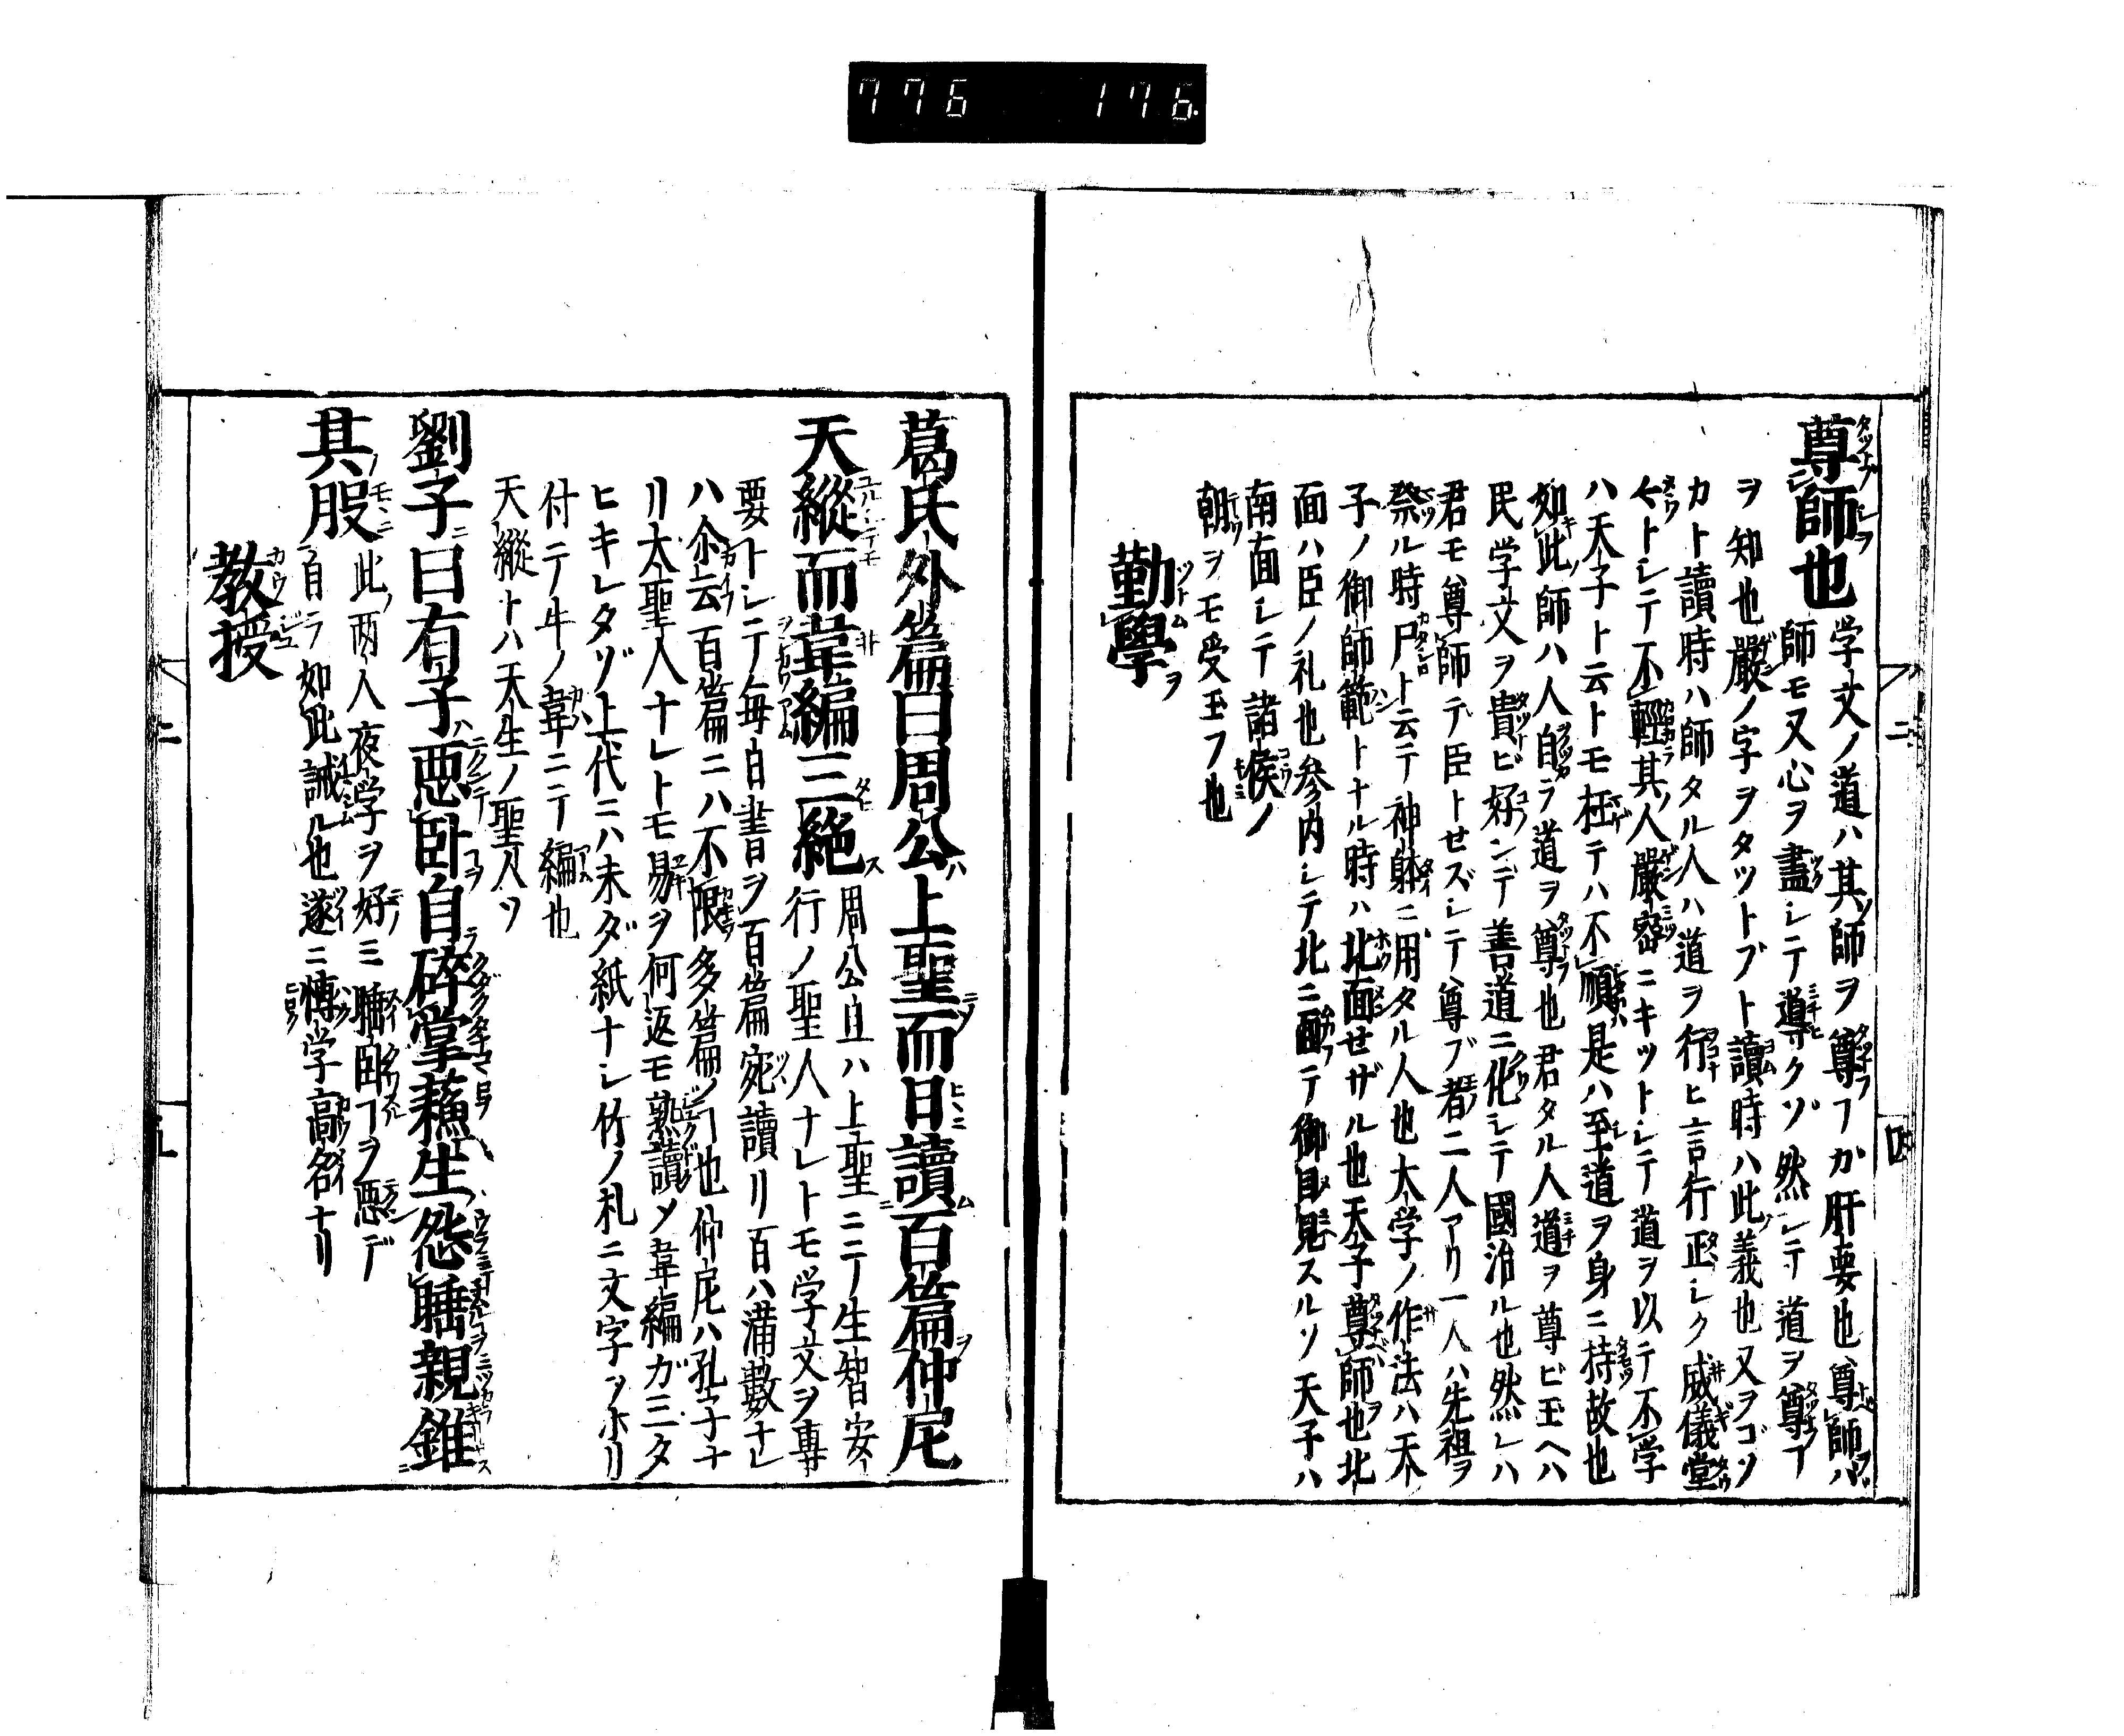 776 176
尊師也 学文ノ道ハ其師ヲ尊フヿカ肝要也尊師ハ
師モ又心ヲ盡シテ導クソ然シテ道ヲ尊フヿ
ヲ知也嚴ノ字ヲタツトブト讀時ハ此義也又ヲゴソ
カト讀時ハ師タル人ハ道ヲ行ヒ言行正シク威儀堂
々トシテ不輕其人嚴密ニキットシテ道ヲ以テ不学
ハ天子ト云トモ枉テハ不順是ハ至道ヲ身ニ持故也
如此師ハ人自ラ道ヲ尊也君タル人道ヲ尊ビ玉ヘハ
民学文ヲ貴ビ好ンデ善道ニ化シテ國治ル也然レハ
君モ尊師デ臣トせズシテ尊ブ者二人アリ一人ハ先祖ヲ
祭ル時尸ト云テ神躰ニ用タル人也大学ノ作法ハ天
子ノ御師範トナル時ハ北面せザル也天子尊師也北
面ハ臣ノ礼也参内シテ北ニ面テ御目見スルソ天子ハ
南面シテ諸侯ノ
朝ヲモ受玉フ也
勤學
葛氏外篇曰周公上聖而日讀百篇仲尼
天縱而韋編三絶 周公旦ハ上聖ニテ生智安
行ノ聖人ナレトモ学文ヲ專
要トシテ毎自書日ヲ百篇宛讀リ百ハ満數ナレ
ハ尒云百篇ニハ不限多篇ノヿ也仲尼ハ孔子ナ
リ大聖人ナレトモ易ヲ何返モ熟讀メ韋編ガ三タ
ヒキレタゾ上代ニハ未ダ紙ナシ竹ノ札ニ文字ッホリ
付テ牛ノ韋ニテ編也
天縱トハ天生ノ聖人ソ
劉子曰有子惡臥自碎掌蘓生怨睡親錐
其股 此両人夜学ヲ好ミ睡臥ヿヲ惡デ
自ラ如此誡ル也遂ニ博学高名ナリ
教授